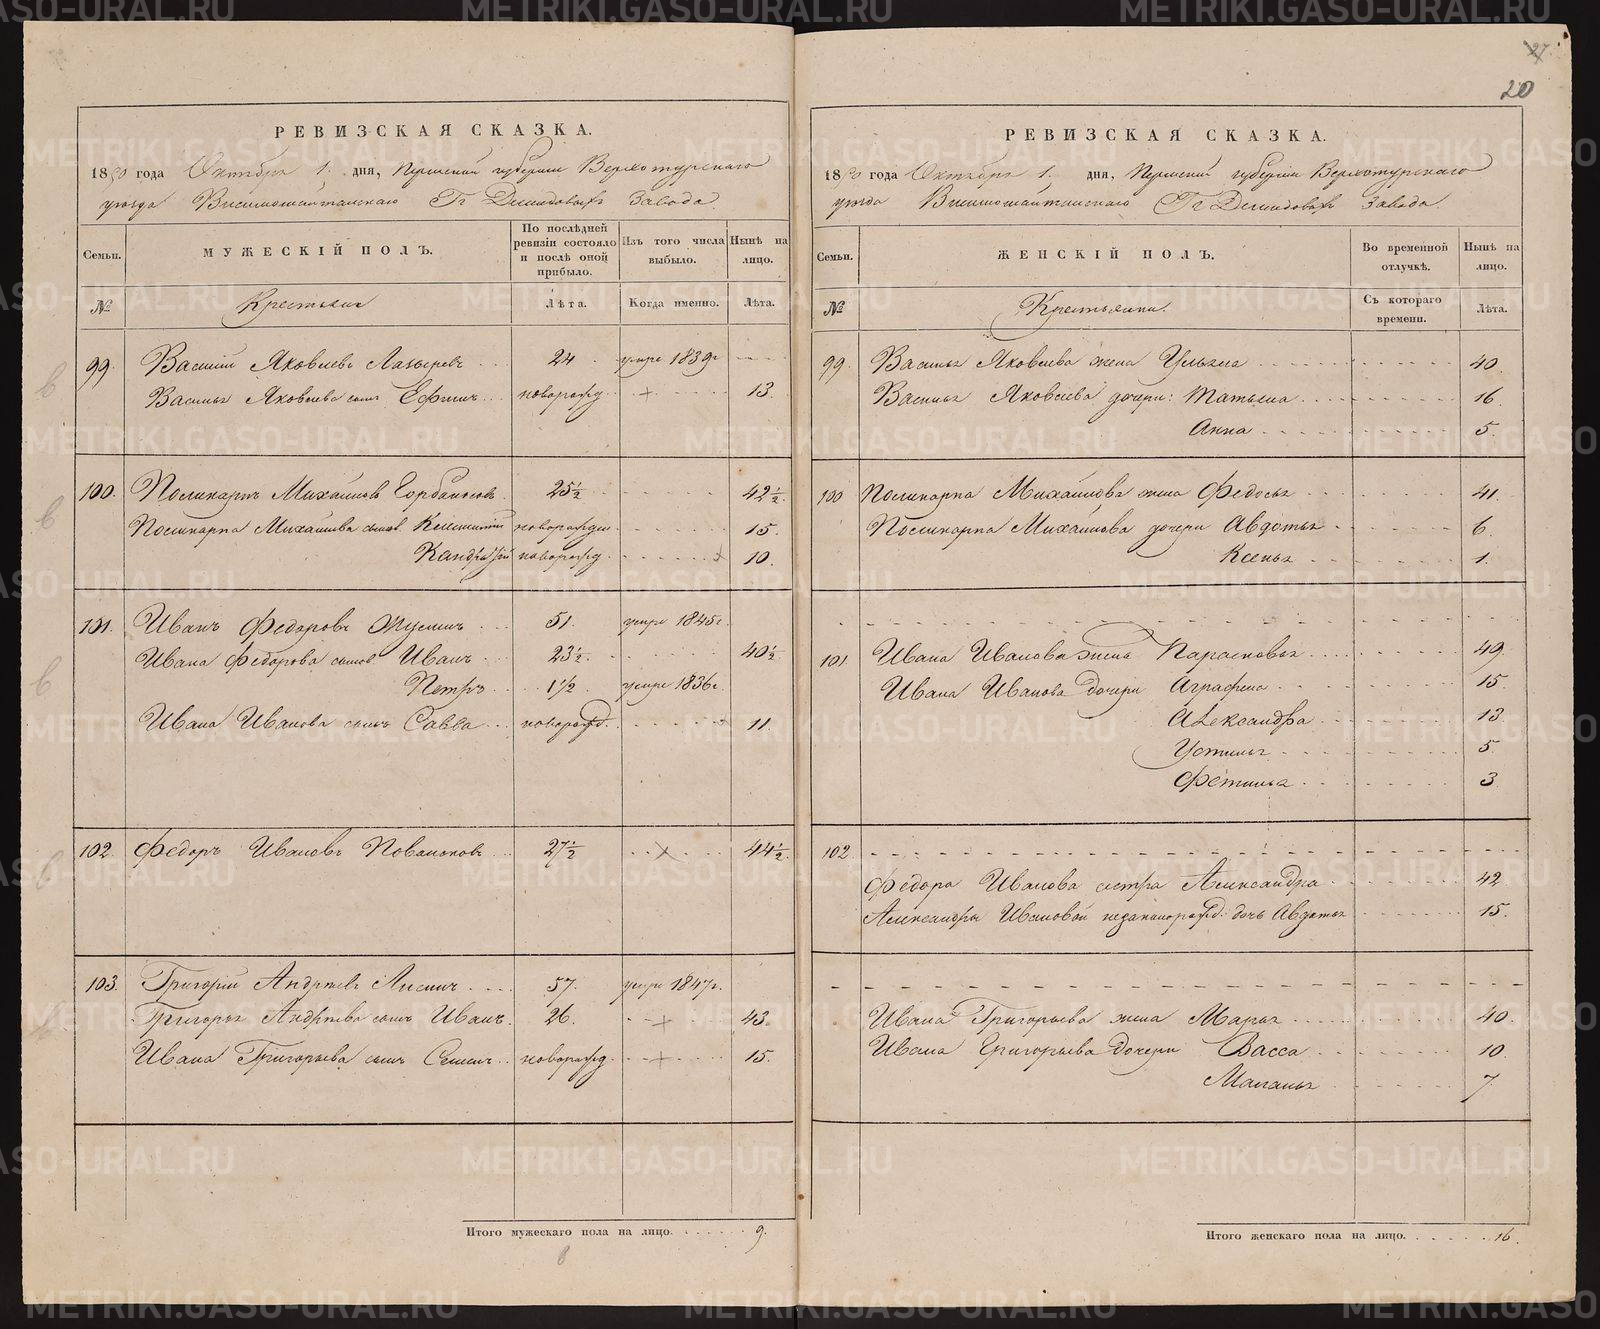 27.
20
РЕВИЗСКАЯ СКАЗКА.
1850 года Октября 1. дня, Пермской губернии Верхотурскаго
уезда Висимошайтанскаго Гг Демидовыхъ завода.
Семьи. МУЖЕСКІЙ ПОЛЪ. По послѣдней ревизіи состояло и послѣ оной прибыло. Изъ того числа выбыло. Нынѣ на лицо.
№ Крестьяне Лѣта. Когда именно. Лѣта.
99. Василий Яковлевъ 24 умре 1839г
Василья Яковлева сынъ Ефимъ новорожд 13.
100. Поликарпъ Михайловъ Горбуновъ 25½ 42½.
Поликарпа Михайлова сынов. новорожден. 15.
новорожд. 10.
101. Иванъ Федоровъ 51. умре 1845г.
Ивана Федорова сынов. Иванъ 23½. 40½
Петръ 1½ умре 1836г
Ивана Иванова сынъ Савва новорожд. 11.
102. Федоръ Ивановъ 27½ 44½.
103. Григорій Андреевъ 57. умре 1847г.
Григорья Андреева сынъ Иванъ. 26. 43.
Ивана Григорьева сынъ Семенъ новорожд 15.
Итого мужескаго пола на лицо. 9.
РЕВИЗСКАЯ СКАЗКА.
1850 года Октября 1. дня, Пермской губернии Верхотурскаго
уезда Висимошайтанскаго Гг Демидовыхъ завода.
Семьи. ЖЕНСКІЙ ПОЛЪ. Во временной отлучкѣ. Нынѣ на лицо.
№ Крестьянки. Съ котораго времени. Лѣта.
99. Василья Яковлева жена Ульяна 40.
Василья Яковлева дочери: Татьяна 16
Анна 5.
100 Поликарпа Михайлова жена Федосья 41.
Поликарпа Михайлова дочери Авдотья 6.
Ксенья 1.
101. Ивана Иванова жена Парасковья 49.
Ивана Иванова дочери Аграфена 15.
Александра 13
Устинья 5
Фетинья 3
102.
Федора Иванова сестра Александра 42
Александры Ивановой незаконорожд: дочь Авдотья 15.
Ивана Григорьева жена Марья 40.
Ивана Григорьева дочери Васса 10.
Маланья 7.
Итого женскаго пола на лицо. 16.
METRIKI.GASO-URAL.RU